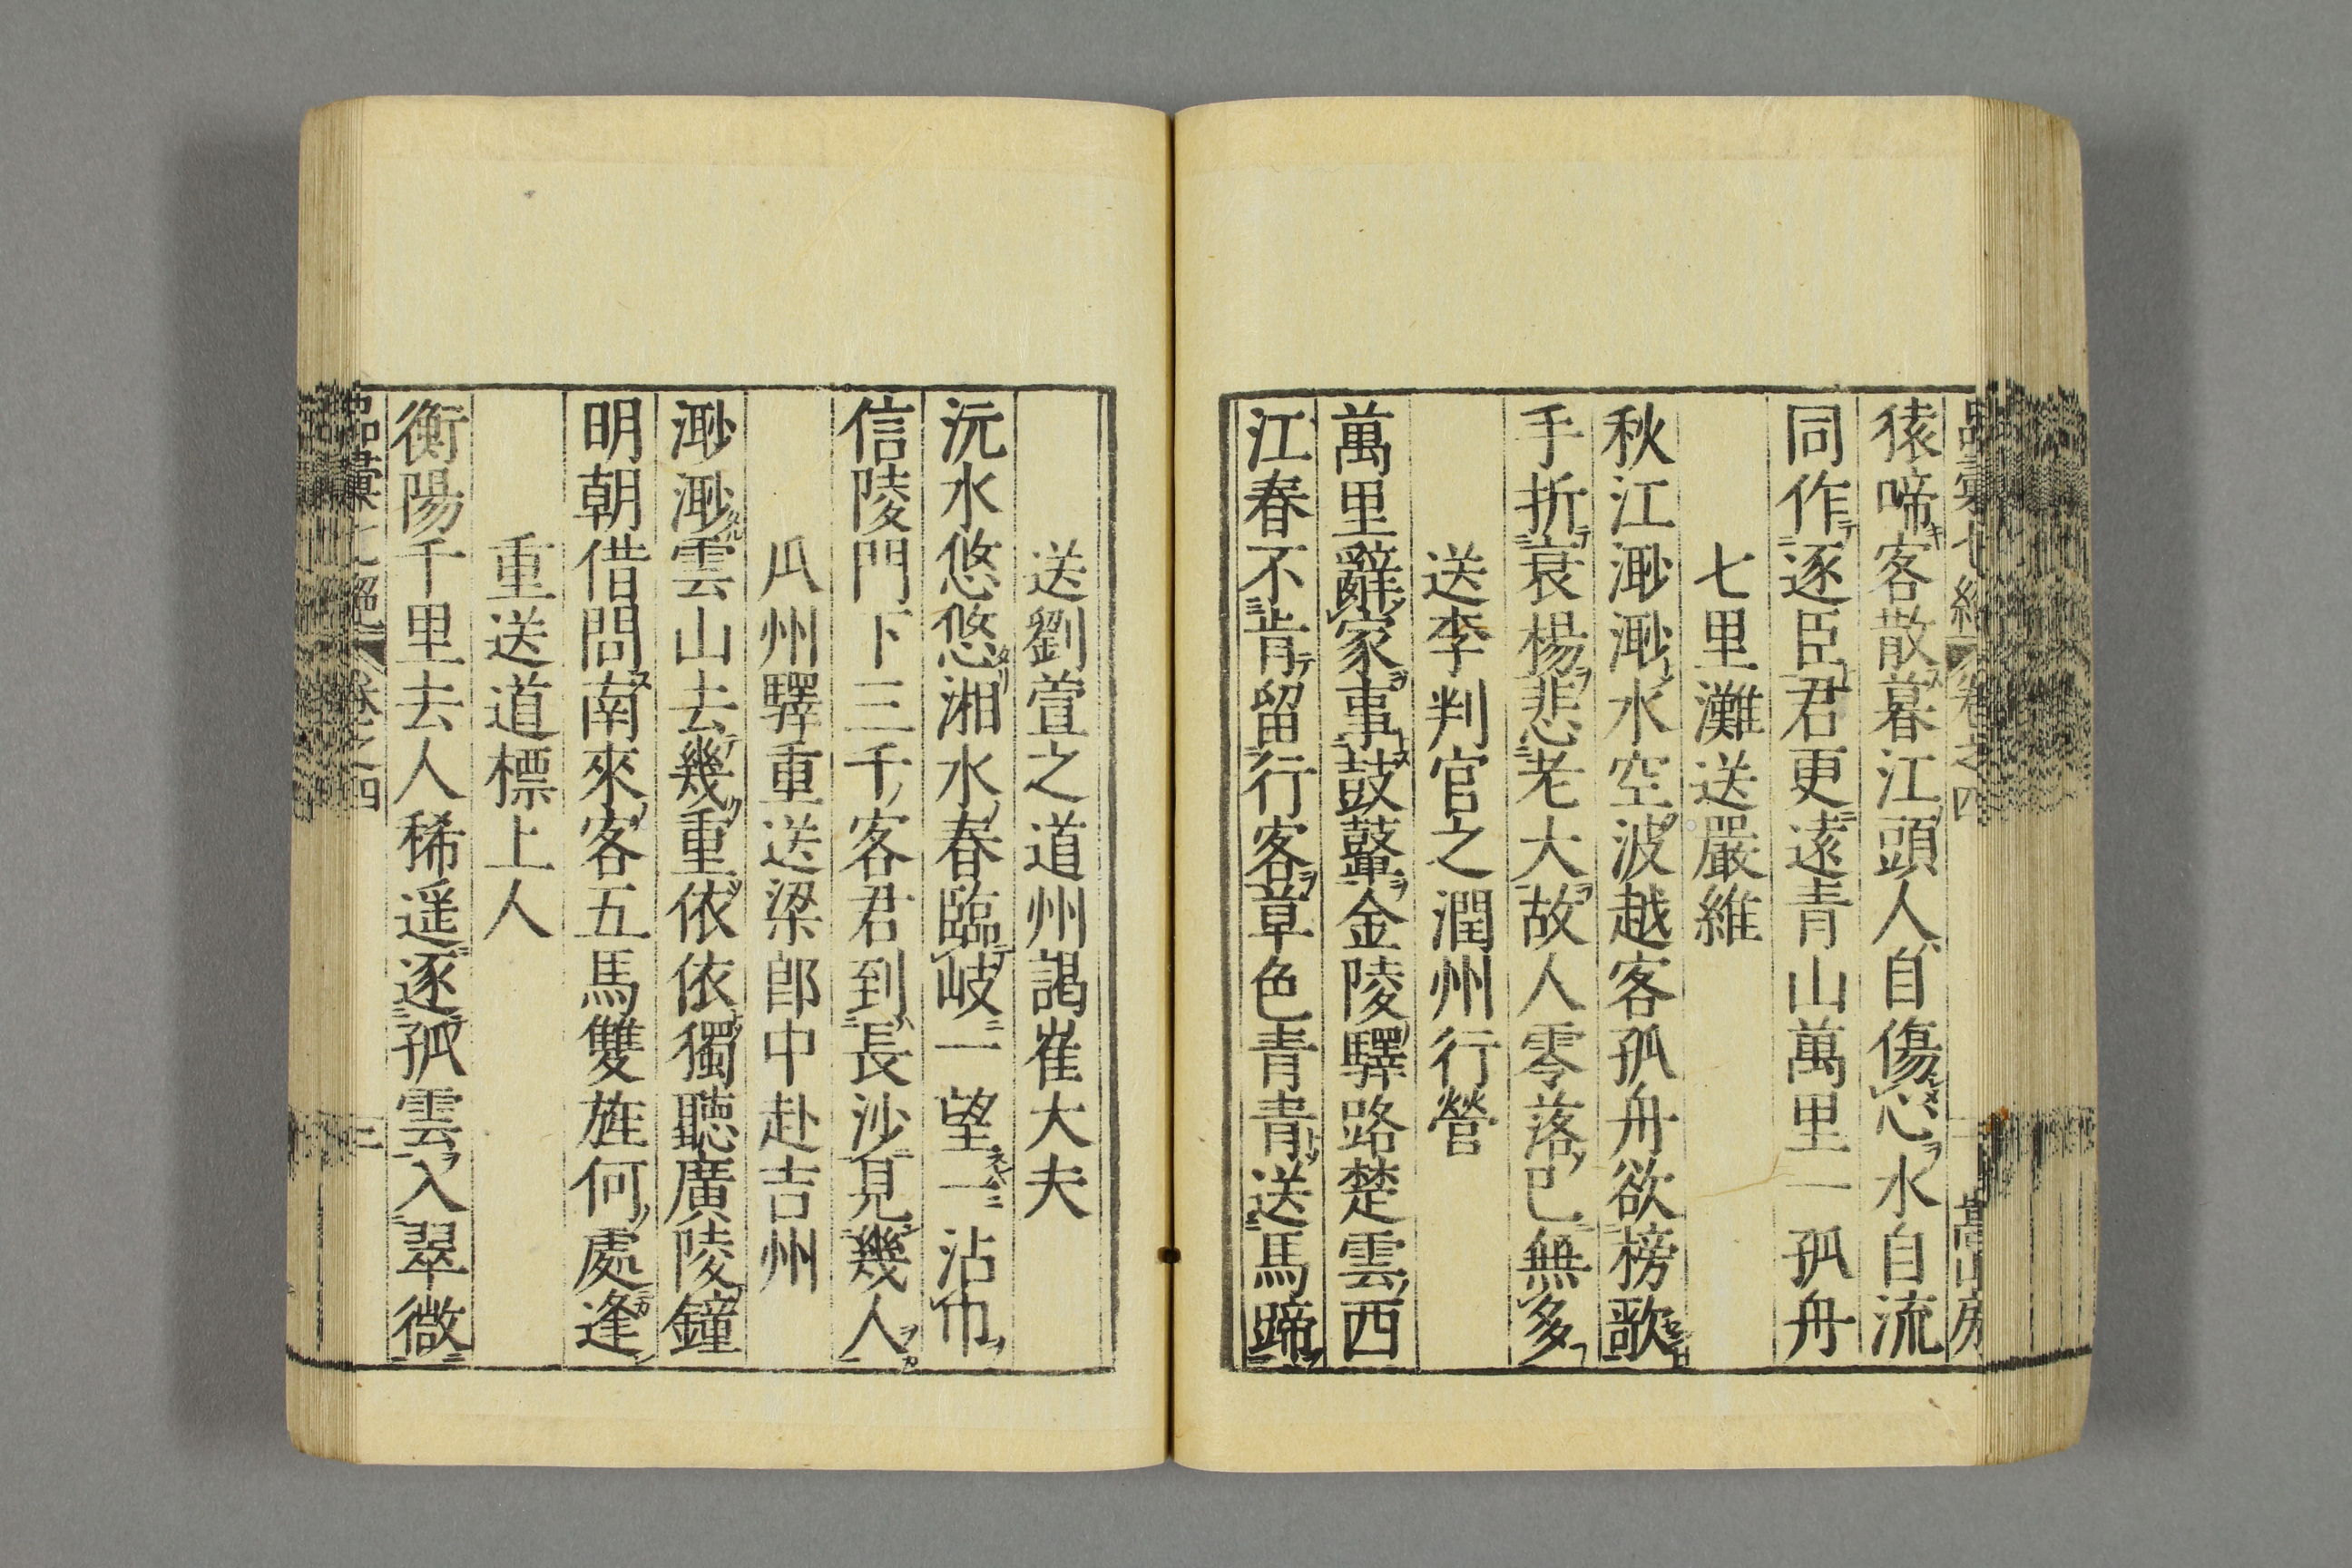 猿啼客散暮江頭人自傷心水自流
同作逐臣君更遠青山萬里一孤舟
七里灘送嚴維
秋江渺渺水空波越客孤舟欲榜歌
手折衰楊悲老大故人零落已無多
送李判官之潤州行營
萬里辭家事鼓鼙金陵驛路楚雲西
江春不肯留行客草色青青送馬蹄
送劉萱之道州謁崔大夫
沅水悠悠湘水春臨岐一望一沾巾
信陵門下三千客君到長沙見幾人
瓜州驛重送梁郎中赴吉州
渺渺雲山去幾重依依獨聽廣陵鐘
明朝借問南來客五馬雙旌何處逢
重送道標上人
衡陽千里去人稀遥逐孤雲入翠微
品彙七絕 卷之四 三